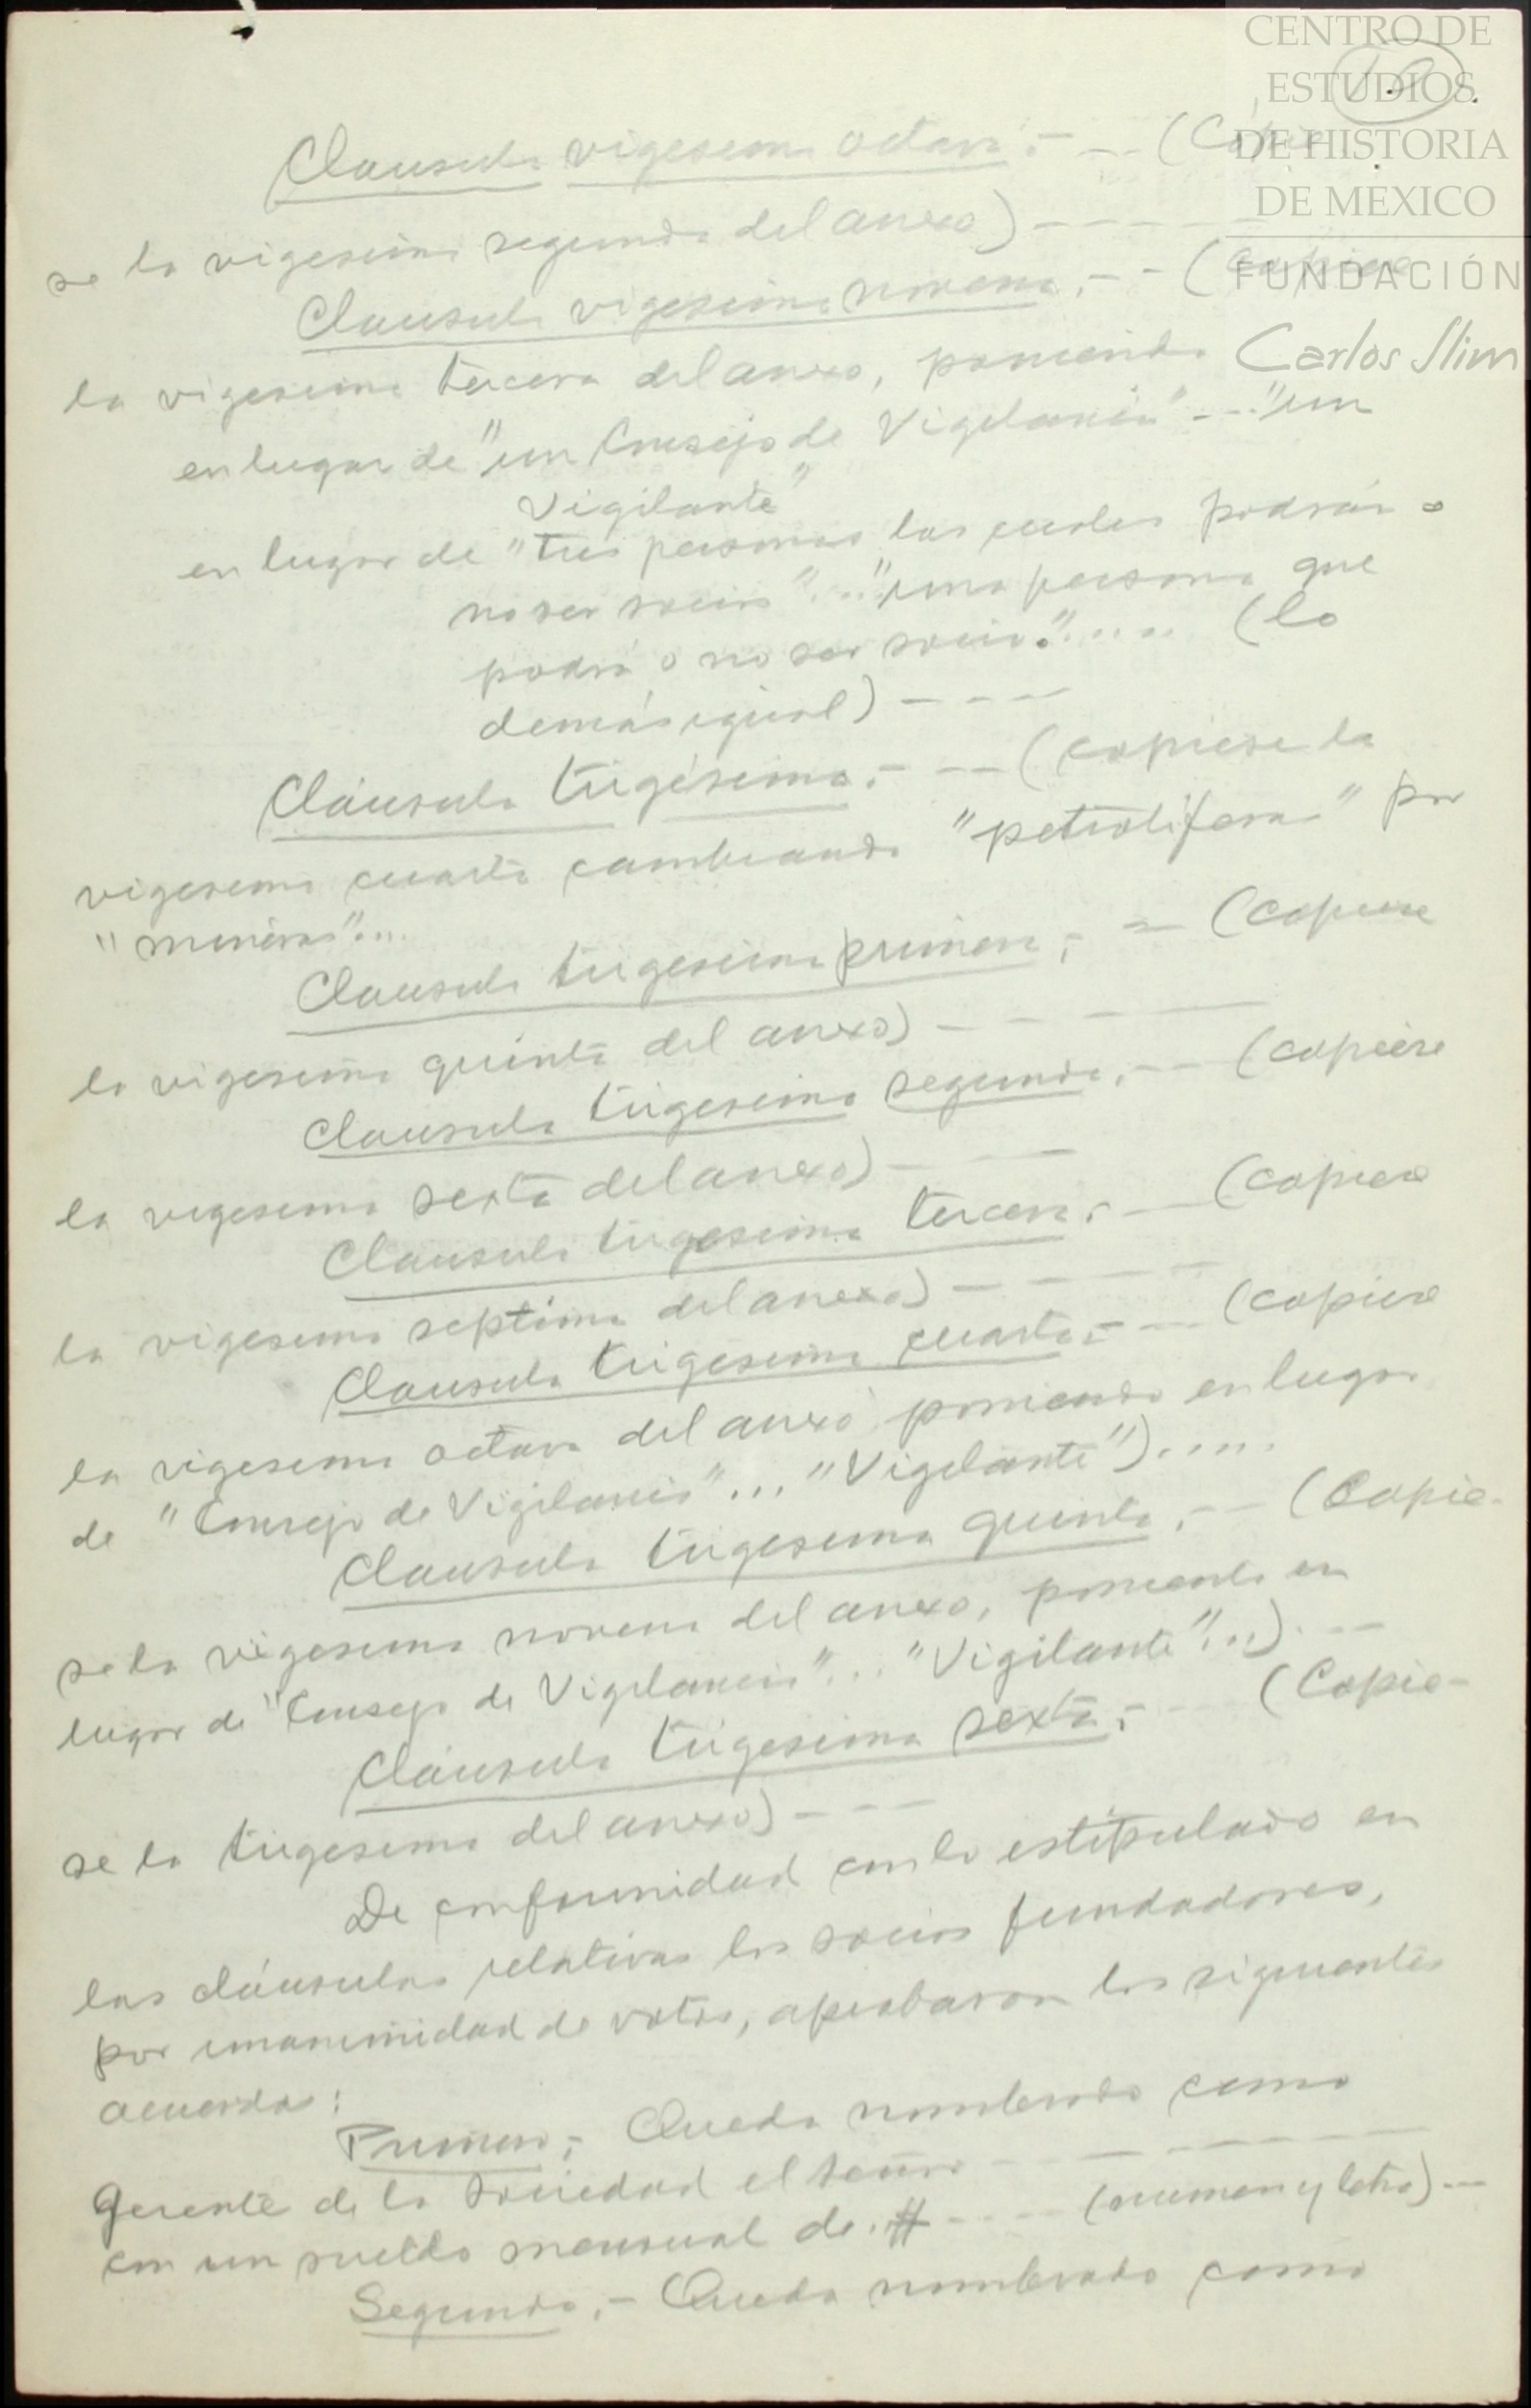 CENTRO DE
ESTUDIOS
DE HISTORIA
DE MEXICO
FUNDACIÓN
Carlos Slim
Clausula vigesima octava.- -- (Copie
se la vigesima segunda del anexo) - - - -
Clausula vigesima novena.- - (copiese
la vigesima tercera del anexo, poniendo
en lugar de "un Consejo de Vigilancia" --- "un
Vigilante"
en lugar de "tres personas las cuales podrán o
no ser socios"..."una persona que
podrá o no ser socio."..... (lo
demás igual) - - - -
Cláusula trigésima.- -- (copiese la
vigesima cuarta cambiando "petroliferas" por
"mineras"...
Clausula trigesima primera.- -- (copiese
la vigesima quinta del anexo) - - - -
Clausula trigesima segunda.-- (copiese
la vigesima sexta del anexo) - - -
Clausula trigesima tercera.- -- (copiese
la vigesima septima del anexo) - - - -
Clausula trigesima cuarta.- -- (copiese
la vigesima octava del anexo poniendo en lugar
de "Consejo de Vigilancia"... "Vigilante").....
Clausula trigesima quinta.-- (Copie-
se la vigesima novena del anexo, poniendo en
lugar de "Consejo de Vigilancia"... "Vigilante"...) - --
Cláusula trigesima sexta.- -- (Copie-
se la trigesima del anexo) - - -
De conformidad con lo estipulado en
las cláusulas relativas los socios fundadores,
por unanimidad de votos, aprobaron los siguientes
acuerdos:
Primero.- Queda nombrado como
Gerente de la Sociedad el señor - - - - - -
con un sueldo mensual de. # - - -- (numero y letra) ---
Segundo.- Queda nombrado como